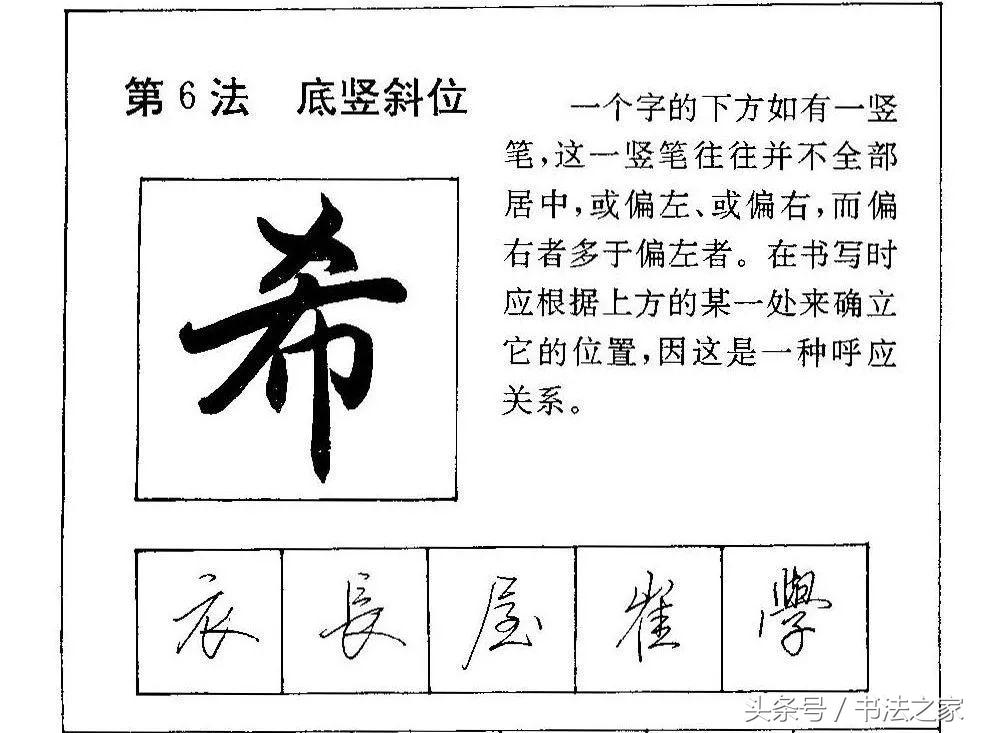 第6法 底竖斜位
一个字的下方如有一竖
笔,这一竖笔往往并不全部
居中,或偏左、或偏右,而偏
右者多于偏左者。在书写时
应根据上方的某一处来确立
它的位置,因这是一种呼应
关系。
希
衣 長 屋 崔 學
头条号 / 书法之家